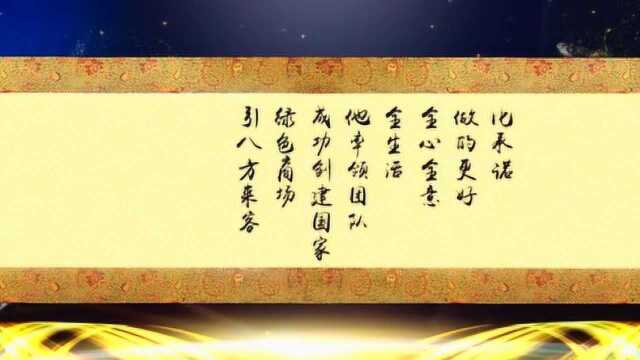 比承诺
做的更好
全心全意
全生活
他率领团队
成功创建国家
绿色商场
引八方来客